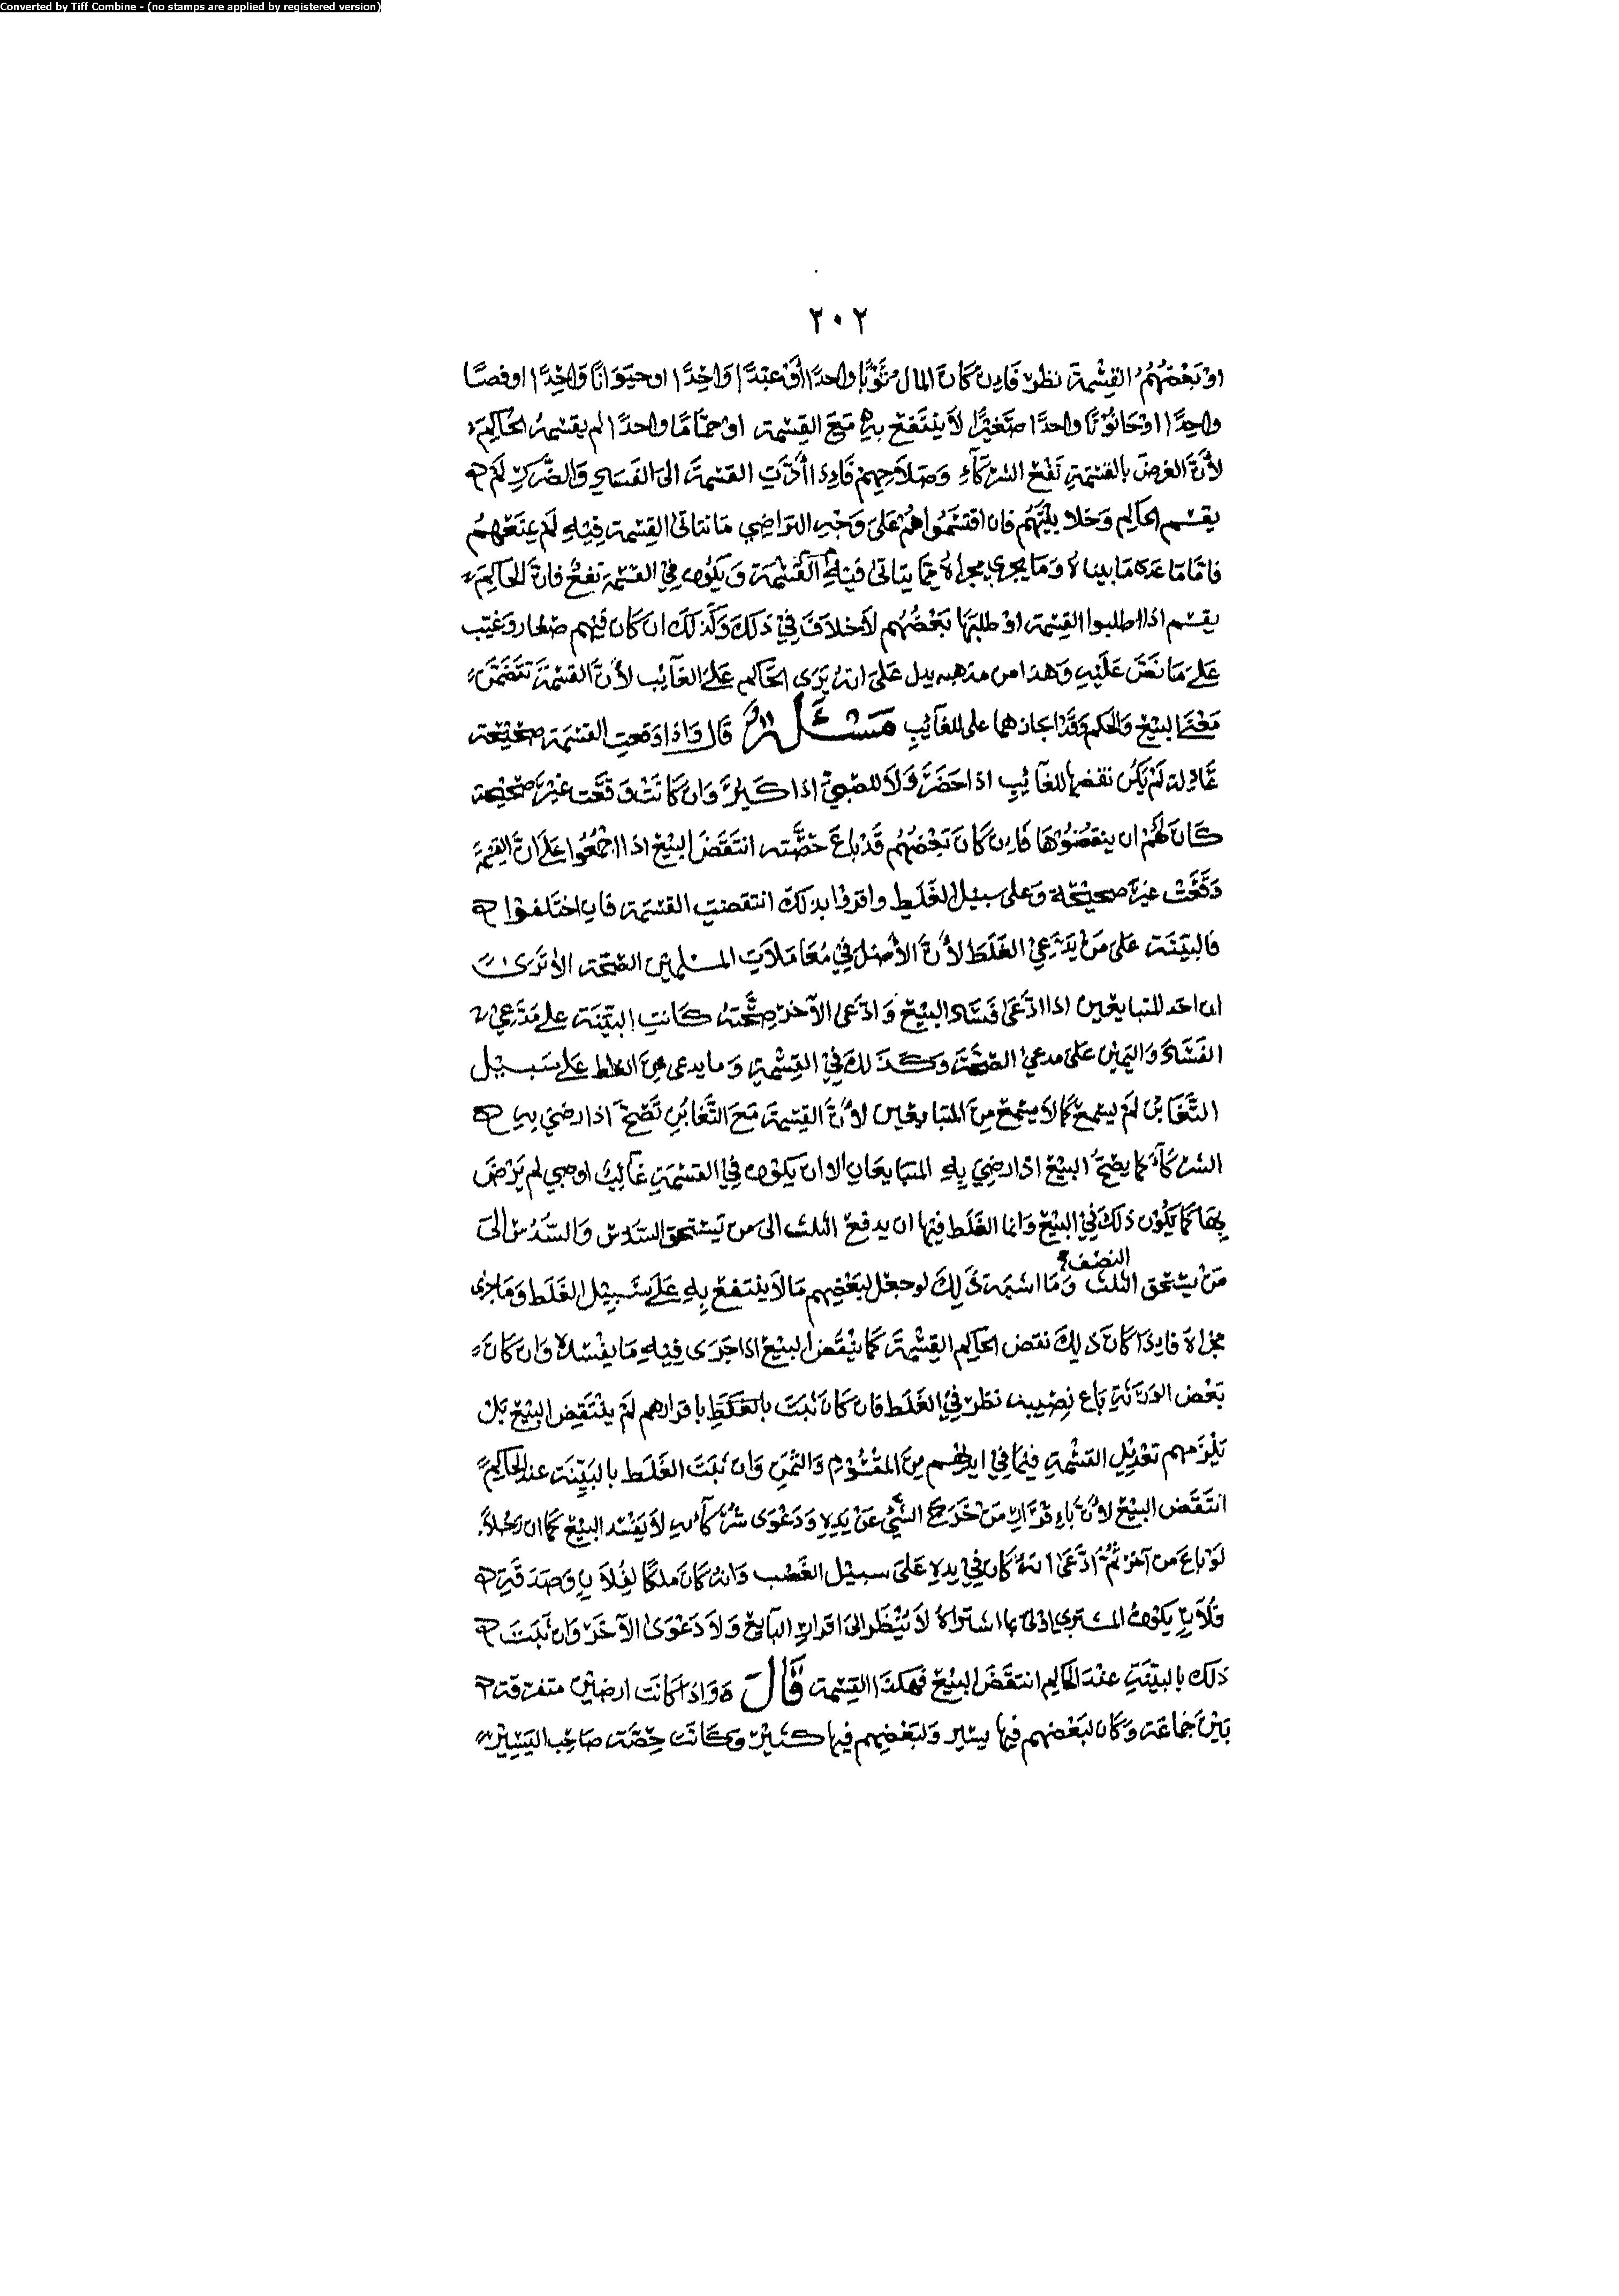 Converted by Tiff Combine - (no stamps are applied by registered version)
٢٠٢
اوْ بَعْضُهُمُ القِسْمَةَ نظر فَاِن كَانَ المال ثَوْبًا واحدًا أوْ عبْدًا وَاحِدًا او حيَوَانًا وَاحِدًا او فصًا
واحِدًا اوْ حَانُوْتًا واحدًا صَغيرًا لاَ يَنْتَفع بهِ مَعَ القِسْمَة اوْ حمّامًا واحدًا لم يقسْمهُ الحَاكِم
لأنَّ الغرضَ بالقسْمَةِ نَفْعَ الشركَآءِ وَصَلاَحِهِمْ فَاِذا أدَّتِ القسْمَةَ الى الفَسَادِ وَالضَّرَرِ لَمْ
يقسْم الحاكِم وَخلا بيْنَهُمْ فان اقتسَمُوا هُمْ عَلىَ وَجْهِ التراضِي مَا تتاتى القِسْمة فِيْهِ لَمْ يمنَعْهُمْ
فامَّا مَا عَدى مَا بينّاهُ وَمَا يجري مجراهُ مِمَّا يتاتى فيْهِ القسْمَة وَيَكُون فِي القسْمَة نفعٌ فانَّ الحَاكِمَ
يقسْم اذا طلبوا القِسْمة اوْ طلبَهَا بَعْضُهُم لاَ خلاَفَ فِيْ ذلكَ وَكَذلكَ ان كَانَ فيْهم صغار وَغيّب
عَلىَ مَا نَصّ عَلَيْهِ وَهذا من مذهبه يدل عَلىَ انهُ يَرَى الحَاكم عَلىَ الغآئب لأنَّ القسْمَةَ تتَضَمَّنُ
مَعْنَى البيْعِ وَالحكم وَقَدْ اجازهما على الغآئبِ مَسْئَلَةٌ قَالَ وَاذا وَقعَتِ القسْمَة صَحِيْحَة
عَادِلة لَمْ يَكُن نقضها للغآئبِ اذا حَضَرَ وَلاَ للصّبيّ اذا كَبرَ وَان كَانَتْ وَقعَت غيْرَ صَحِيْحَة
كَانَ لَهُمْ ان ينقضُوْهَا فَاِن كَانَ بَعْضُهُم قَدْ بَاعَ حصَّته انتَقَضَ البيْعُ اذا اجْمَعُوا عَلىَ انَّ القِسْمَةَ
وَقَعَتْ غيْرَ صَحيْحَة وَعلى سبيْل الغَلَطِ واقروا بذلكَ انتقضتِ القسْمَة فان اختَلَفُوْا
فالبيّنَة عَلى مَنْ يَدَّعِي الغَلَطَ لأنَّ الأصْلَ فِيْ مُعَامَلاَتِ المسْلمِيْن الصّحّة الا تَرى
ان احَد المتبايعَين اذا ادَّعَى فَسَادَ البيْعِ وَادَّعى الآخر صِحَّتهُ كَانتِ البيّنَة عَلى مُدَّعِيْ
الفَسَادَ وَاليَمِيْن عَلىَ مدعيْ الصّحَّةَ وَكَذلكَ فِيْ القِسْمَةِ وَمَا يدعى مِنَ الغلط عَلىَ سَبيْل
التَّغَابُن لَمْ يسْمعْ كَمَا لاَ يسْمعْ مِنَ المتبايعَين لأنَّ القِسْمَةَ مَعَ التَّغَابُنِ تَصْحّ اذا رضِيَ بِهِ
الشركَآءُ كَمَا يصْحُّ البيْعُ اذا رضِيَ بِهِ المتبايعَانِ الا ان يَكوْن فِيْ القسْمَةِ غآئبٌ او صبي لم يَرْضَ
بِهَا كَمَا يَكُوْن ذلكَ فِيْ البيْعِ وَانما الغَلَط فيْها ان يدفعْ الثلث الى من يَسْتحقّ السّدس وَالسُّدُسْ الىَ
النصف
مَنْ يَسْتحق الثلث وَمَا اشْبَهَ ذَلِكَ لو جعل لبَعْضِهم مَا لاَ ينتفعْ بِهِ عَلىَ سَبِيْل الغَلَط وَمَا جرى
مجراهُ فاِذَا كَانَ ذَلِكَ نقض الحاكِم القِسْمَةَ كَمَا ينْقَض البيْعُ اذا جَرَى فِيْهِ مَا يفْسدهُ وَان كَانَ
بَعْض الوَرَثةِ بَاع نصِيبه نظر فِيْ الغَلَط فان كَانَ ثَبتَ بالغَلَطِ باقرارهم لَمْ ينْتَقِض البيْعُ بَلْ
يَلْزَمهم تعْدِيْل القسْمَةِ فيْمَا فِيْ ايديْهم مِنَ المقْسُوْمِ وَالثمَنِ وَان ثبَتَ الغَلَط بالبَيِّنَة عند الحَاكِمِ
انتَقَض البيْعُ لأنَّ باِقْرَارِ مَنْ خَرَجَ الشَّيْ عَنْ يَدِهِ وَدَعْوَى شُرَكَآئهِ لاَ يَفْسُد البيْعُ كَمَا ان رَجُلاً
لَوْ باعَ من آخرٍ ثُمَّ ادَّعَى انهُ كَانَ فِيْ يدهِ عَلىَ سبيْل الغَصْب وَانهُ كَانَ ملكًا لِفُلاَنٍ وَصَدَّقَهُ
فُلاَنٌ يَكوْن المشتري اولى بما اشتراهُ لاَ يُنْظَر الى اقرارِ البَايعْ وَلاَ دَعْوَى الآخَرْ وَان ثَبَتَ
ذلكَ بالبيّنَةِ عنْد الحاكِم انتقَضَ البيْعُ فَهكذا القِسْمة قَالَ وَاذا كَانَت ارضيْن متفرقة
بَيْنَ جَمَاعَة وَكَان لبَعْضهم فيها يسيْر وَلبَعْضِهِم فيها كَثيْرٌ وَكَانَت حِصَّة صَاحِب اليَسِيْرِ